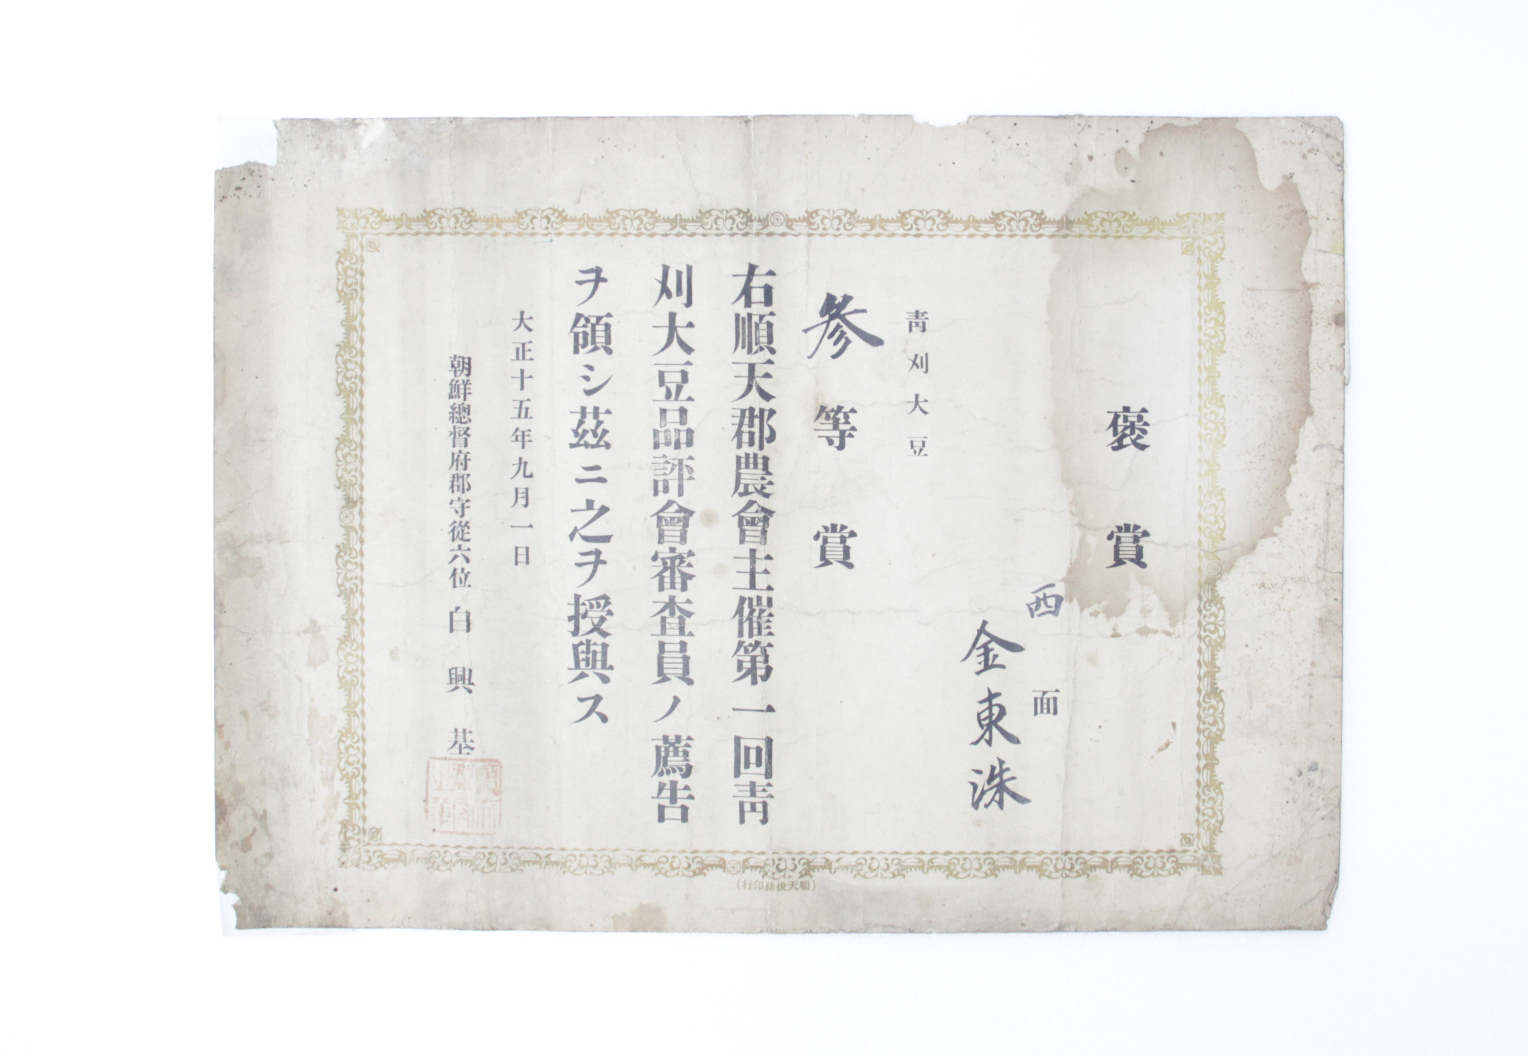 褒賞
西面
金東洙
青刈大豆
參等賞
右順天郡農會主催第一回青
刈大豆品評會審查員ノ薦告
ヲ領シ茲ニ之ヲ授與ス
大正十五年九月一日
朝鮮總督府郡守從六位白興基